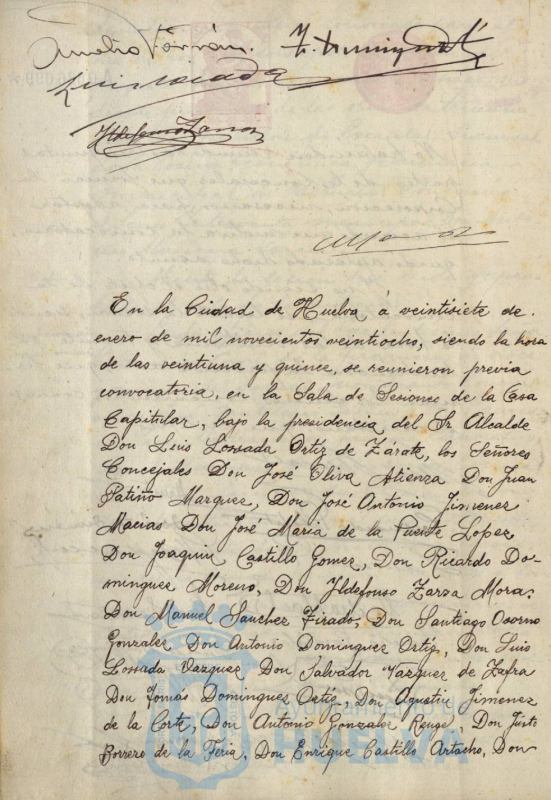 Aurelio Terrán.
Ildefonso Zarza
En la Ciudad de Huelva á veintisiete de.
enero de mil novecientos veintiocho, siendo la hora
de las veintiuna y quince, se reunieron previa
convocatoria, en la Sala de Sesiones de la Casa
Capitular, bajo la presidencia del Sr Alcalde
Don Luis Lossada Ortíz de Zárate, los Señores
Concejales Don José Oliva Atienza Don Juan
Patiño Marquez, Don José Antonio Jimenez
Macias Don José Maria de la Puente Lopez,
Don Joaquin Castillo Gomez, Don Ricardo Do-
minguez Moreno, Don Ildefonso Zarza Mora,
Don Manuel Sanchez Tirado, Don Santiago Osorno
Gonzalez Don Antonio Dominguez Ortíz, Don Luis
Lossada Vazquez Don Salvador Vazquez de Zafra
Don Tomás Domingues Ortíz, Don Agustin Jimenez
de la Corte, Don Antonio Gonzalez Don Justo
Borrero de la Feria, Don Enrique Castillo Artacho, Don
Ayuntamiento de
HUELVA